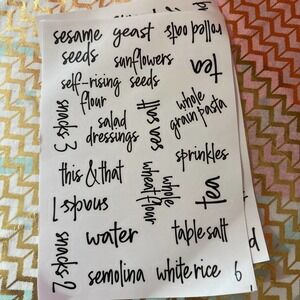 sesame yeast
seeds
sunflowers
seeds
rolled oats
tea
self-rising
flour
whole
grain pasta
snacks 3
salad
dressings
sea salt
sprinkles
this & that
whole
wheat flour
tea
snacks 1
snacks 2
water
table salt
semolina
white rice